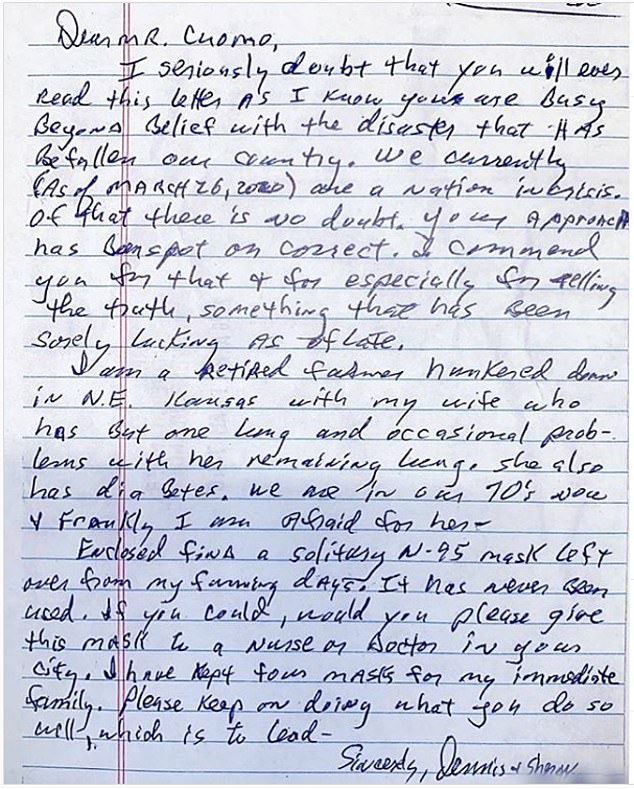 Dear MR. Cuomo,
I seriously doubt that you will ever
read this letter As I know you are Busy
Beyond Belief with the disaster that HAS
Befallen our country. We currently
(As of MARCH 26, 2020) are a nation in crisis.
Of that there is no doubt. your Approach
has Been spot on correct. I commend
you for that & for especially for telling
the truth, something that has Been
sorely lacking AS of LATE.
I am a Retired farmer hunkered down
in N.E. Kansas with my wife who
has But one lung and occasional prob-
lems with her remaining lung. She also
has diaBetes. We are in our 70's now
& Frankly I am Afraid for her-
Enclosed find a solitary N-95 mask left
over from my farming days. It has never Been
used. If you could, would you please give
this mask to a Nurse or Doctor in your
city. I have kept four masks for my immediate
family. Please keep on doing what you do so
well, which is to lead-
Sincerely, Dennis & Sharon